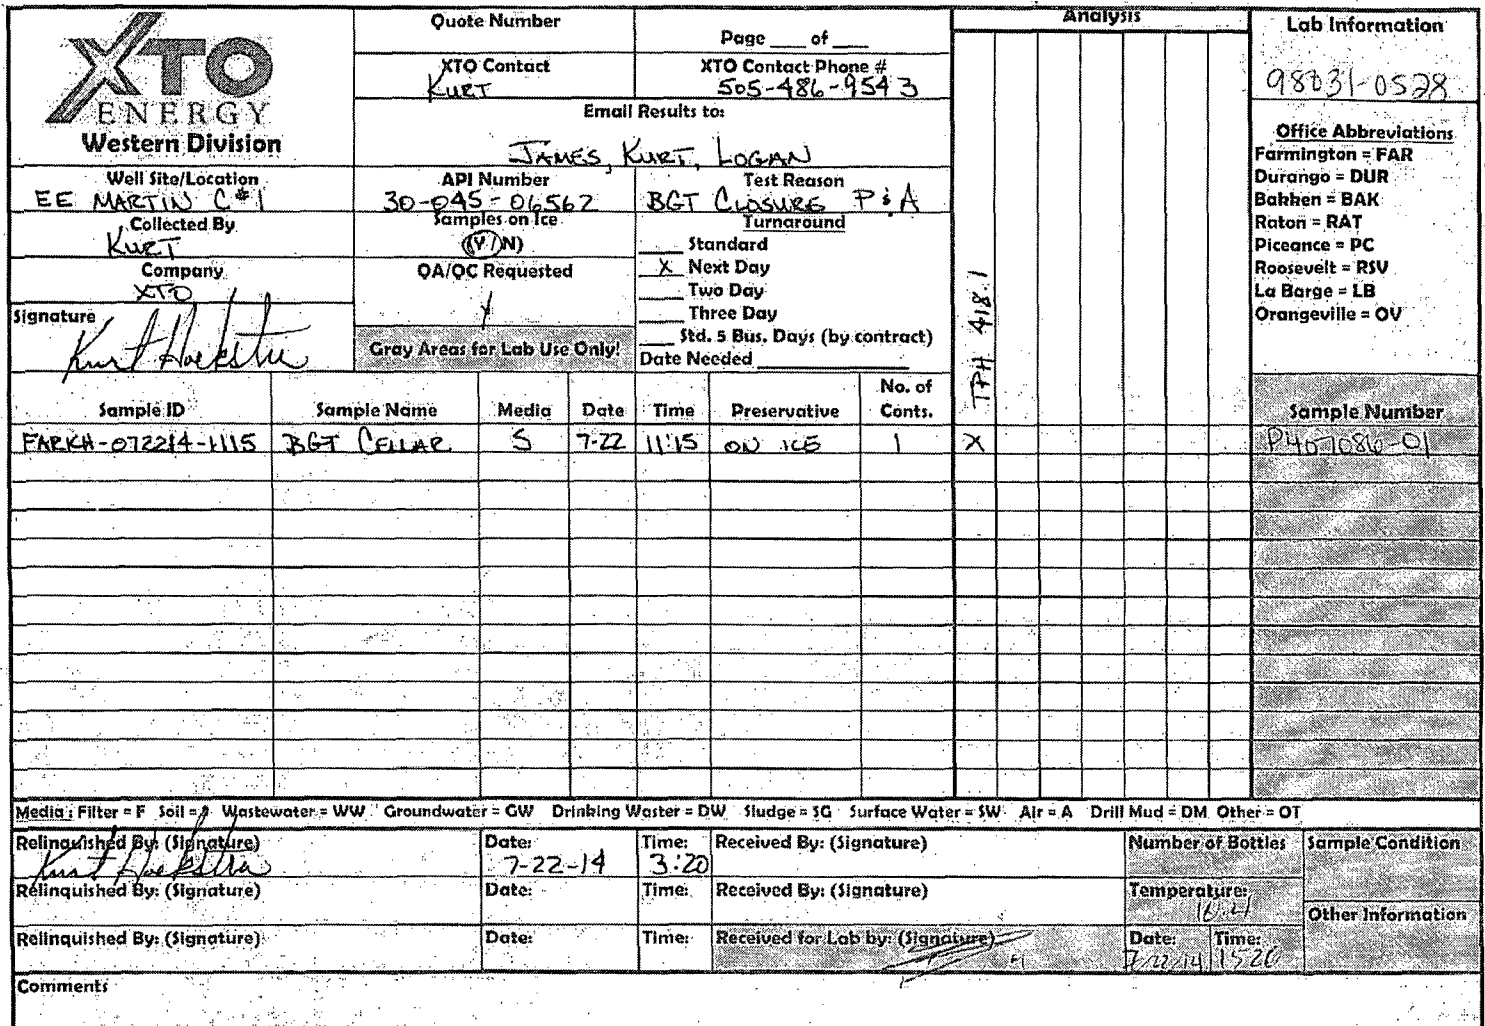 XTO
ENERGY
Western Division
Quote Number
Page ___ of ___
XTO Contact
KURT
XTO Contact Phone #
505-486-9543
Email Results to:
JAMES, KURT, LOGAN
Well Site/Location
EE MARTIN C #1
API Number
30-045-06562
Test Reason
BGT CLOSURE P & A
Collected By
KURT
Samples on Ice
(Y/N)
Turnaround
___ Standard
X Next Day
___ Two Day
___ Three Day
___ Std. 5 Bus. Days (by contract)
Date Needed ___
Company
XTO
QA/QC Requested
Signature
Kurt Hoekstra
Gray Areas for Lab Use Only!
Analysis
TPH 418.1
Lab Information
98031-0528
Office Abbreviations
Farmington = FAR
Durango = DUR
Bakken = BAK
Raton = RAT
Piceance = PC
Roosevelt = RSV
La Barge = LB
Orangeville = OV
Sample ID Sample Name Media Date Time Preservative No. of Conts. Sample Number
FARKH-072214-1115 BGT CELLAR S 7-22 11:15 ON ICE 1 X P407086-01
Media : Filter = F Soil = S Wastewater = WW Groundwater = GW Drinking Waster = DW Sludge = SG Surface Water = SW Air = A Drill Mud = DM Other = OT
Relinquished By: (Signature) Date: Time: Received By: (Signature) Number of Bottles Sample Condition
Kurt Hoekstra 7-22-14 3:20
Relinquished By: (Signature) Date: Time: Received By: (Signature) Temperature:
Other Information
Relinquished By: (Signature) Date: Time: Received for Lab by: (Signature) Date: Time:
7/22/14 1520
Comments